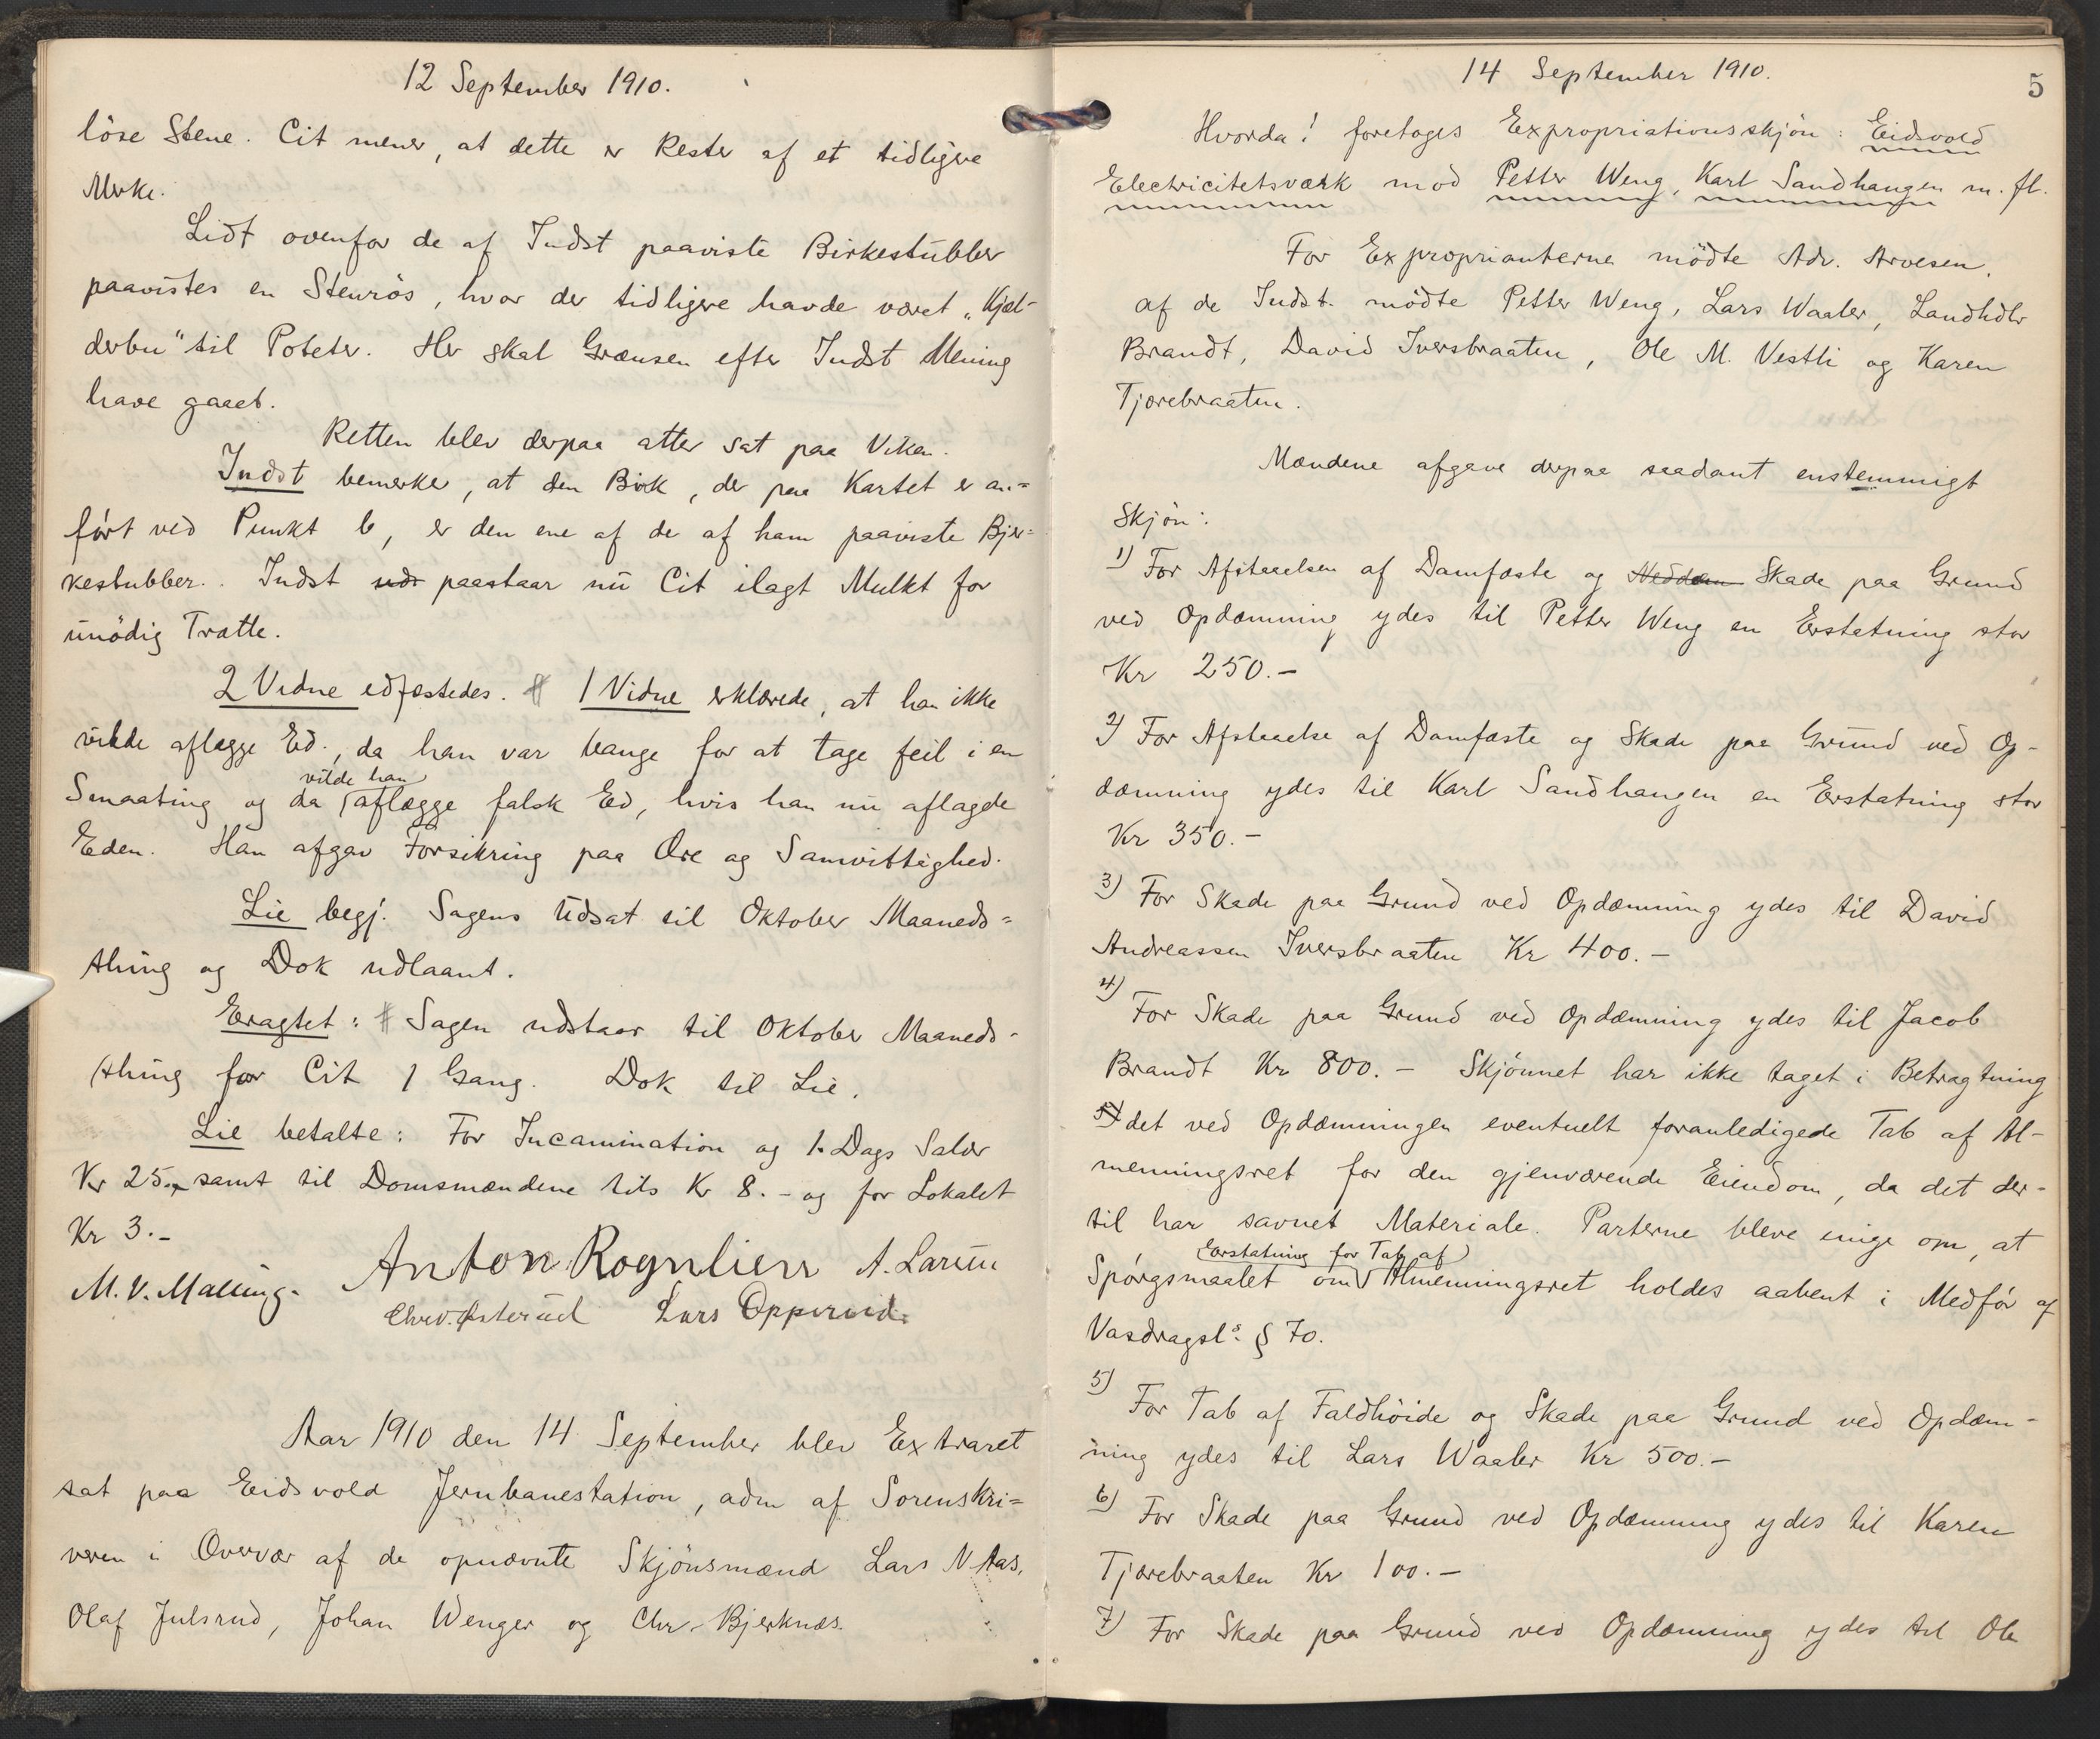 12 September 1910.
löse Stene. Cit mener, at dette er Rester af et tidligere
Merke.
Lidt ovenfor de af Indst paaviste Birkestubber
paavistes en Stenrös, hvor der tidligere havde været „Kjel-
derbu" til Poteter. Her skal Grænsen efter Indst Mening
have gaaet.
Retten blev derpaa atter sat paa Viken.
Indst bemerker, at den Birk, der paa Kartet er an=
fört ved Punkt b, er den ene af de af ham paaviste Bjer=
kestubber. Indst uds paastaar nu Cit ilagt Mulkt for
unödig Trætte.
2 Vidne edfæstedes. 1 Vidne erklærede, at han ikke
vilde aflægge Ed., da han var bange for at tage feil i en
vilde han
Smaating og da aflægge falsk Ed, hvis han nu aflagde
Eden. Han afgav Forsikring paa Ære og Samvittighed.
Lie begj. Sagens Udsat til Oktober Maaneds=
thing og Dok udlaant.
Eragtet: Sagen udstaar til Oktober Maaneds-
thing for Cit 1 Gang. Dok til Lie.
Lie betalte: For Incamination og 1. Dags Salær
Kr 25.- samt til Domsmændene tils Kr 8.- og for Lokalet
Kr 3.-
M. V. Malling. Anton Rognlien A. Larum
Chr. Østerud Lars Opperud.
Aar 1910 den 14 September blev Extraret
sat paa Eidsvold Jernbanestation, adm af Sorenskri=
veren i Overvær af de opnævnte Skjönsmænd Lars N Aas,
Olaf Julsrud, Johan Wenger og Chr. Bjerknæs.
14 September 1910.
5
Hvorda! foretoges Expropriationsskjön: Eidsvold
Electricitetsværk mod Petter Weng, Karl Sandhangen m. fl.
For Exproprianterne mödte Adv. Arvesen.
af de Indst. mödte Petter Weng, Lars Waaler, Landhdlr
Brandt, David Iversbraaten, Ole M. Vestli og Karen
Tjærebraaten.
Mændene afgave derpaa saadant enstemmigt
Skjön:
1) For Afstaaelsen af Damfæste og Neddæm Skade paa Grund
ved Opdæmning ydes til Petter Weng en Erstatning stor
Kr 250.-
2) For Afstaaelse af Damfæste og Skade paa Grund ved Op-
dæmning ydes til Karl Sandhangen en Erstatning stor
Kr 350.-
3) For Skade paa Grund ved Opdæmning ydes til David
Andreassen Iversbraaten Kr 400.-
4)
For Skade paa Grund ved Opdæmning ydes til Jacob
Brandt Kr 800.- Skjönnet har ikke taget i Betragtning
5) det ved Opdæmningen eventuelt foranledigede Tab af Al-
menningsret for den gjenværende Eiendom, da det der-
til har savnet Materiale. Parterne bleve enige om, at
Erstatning for Tab af
Spörgsmaalet om Almenningsret holdes aabent i Medför af
Vasdragsl. § 70.
5)
For Tab af Faldhöide og Skade paa Grund ved Opdæm-
ning ydes til Lars Waaler Kr 500.-
6) For Skade paa Grund ved Opdæmning ydes til Karen
Tjærebraaten Kr 100.-
7) For Skade paa Grund ved Opdæmning ydes til Ole